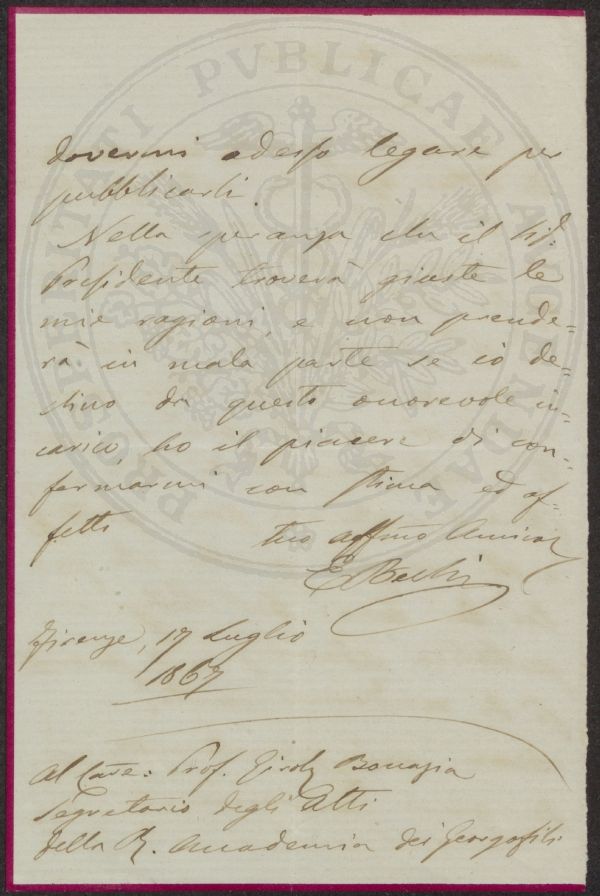 PROSPERITATI PVBLICAE AVGENDAE
dovermi adesso legare per
pubblicarli.
Nella speranza che il Sig:
Presidente troverà giuste le
mie ragioni, e non prende=
rà in mala parte se io de=
clino da questo onorevole in=
carico, ho il piacere di con=
fermarmi con stima ed af=
fetto
tuo affmo Amico
E Bechi
Firenze, 17 Luglio
1867
Al Cave: Prof.
Segretario degli Atti
della R. Accademia dei Georgofili